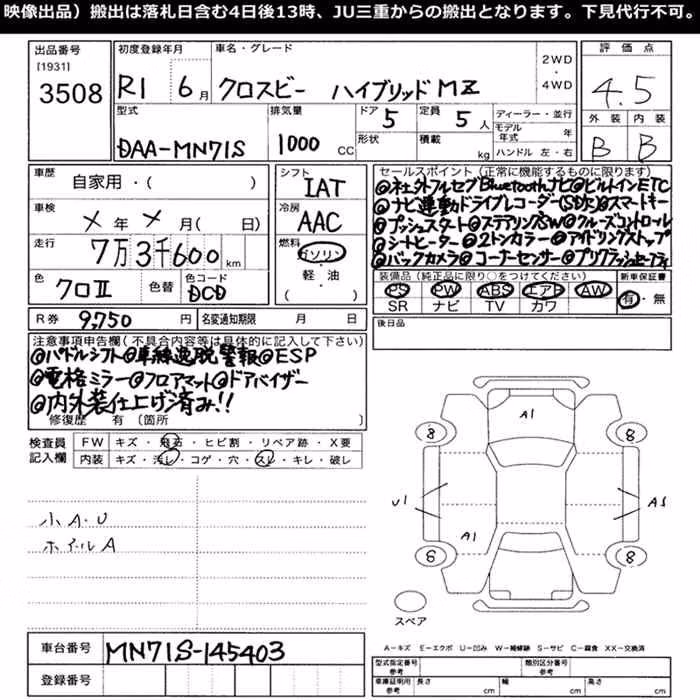 映像出品）搬出は落札日含む4日後13時、JU三重からの搬出となります。下見代行不可。
出品番号
[1931]
3508
初度登録年月
R1 6月
車名・グレード
クロスビー ハイブリッドMZ
2WD
・
4WD
評価点
4.5
外装 内装
B B
型式
DAA-MN71S
排気量
1000 CC
ドア 5
形状
定員 5人
積載 kg
ディーラー・並行
モデル年式 年
ハンドル 左・右
車歴
自家用・( )
車検
メ年メ月( 日)
走行
7万3千600km
色
クロII
色替
色コード
DCD
シフト
IAT
冷房
AAC
燃料
ガソリン
・
軽・油
( )
セールスポイント（正常に機能するものに限ります）
@ネェ外フルセグBluetoothナビ@ビルトインETC
@ナビ連動ドライブレコーダー(SD无)@スマートキー
@プッシュスタート@ステアリングSW@クルーズコントロール
@シートヒーター@2トンカラー@アイドリングストップ
@バックカメラ@コーナーセンサー@プリクラッシュセーフティ
装備品（純正品に限り○をつけてください）
PS PW ABS エアB AW
SR ナビ TV カワ
新車保証書
有・無
後日品
R券 9,750円
名変通知期限 月 日
注意事項申告欄（不具合内容等は具体的に記入して下さい）
@パドルシフト@車線逸脱警報@ESP
@電格ミラー@フロアマット@ドアバイザー
@内外装仕上げ済み!!
修復歴 有〔箇所 〕
検査員
記入欄
FW キズ・飛石・ヒビ割・リペア跡・X要
内装 キズ・汚レ・コゲ・穴・スレ・キレ・破レ
小A・U
ホイールA
A1
8 8
U1
AS
A1
8 8
スペア
A－キズ E－エクボ U－凹み W－補修跡 S－サビ C－腐食 XX－交換済
車台番号 MN71S-145403
登録番号
型式指定番号
参考
類別区分番号
参考
車庫証明用
参考
長さ cm
幅 cm
高さ cm